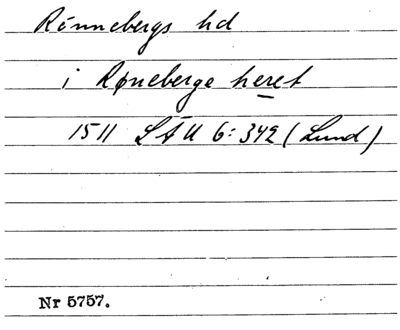 Rönnebergs hd
i Røneberge heret
1511 LÄU 6:342 (Lund)
Nr 5757.